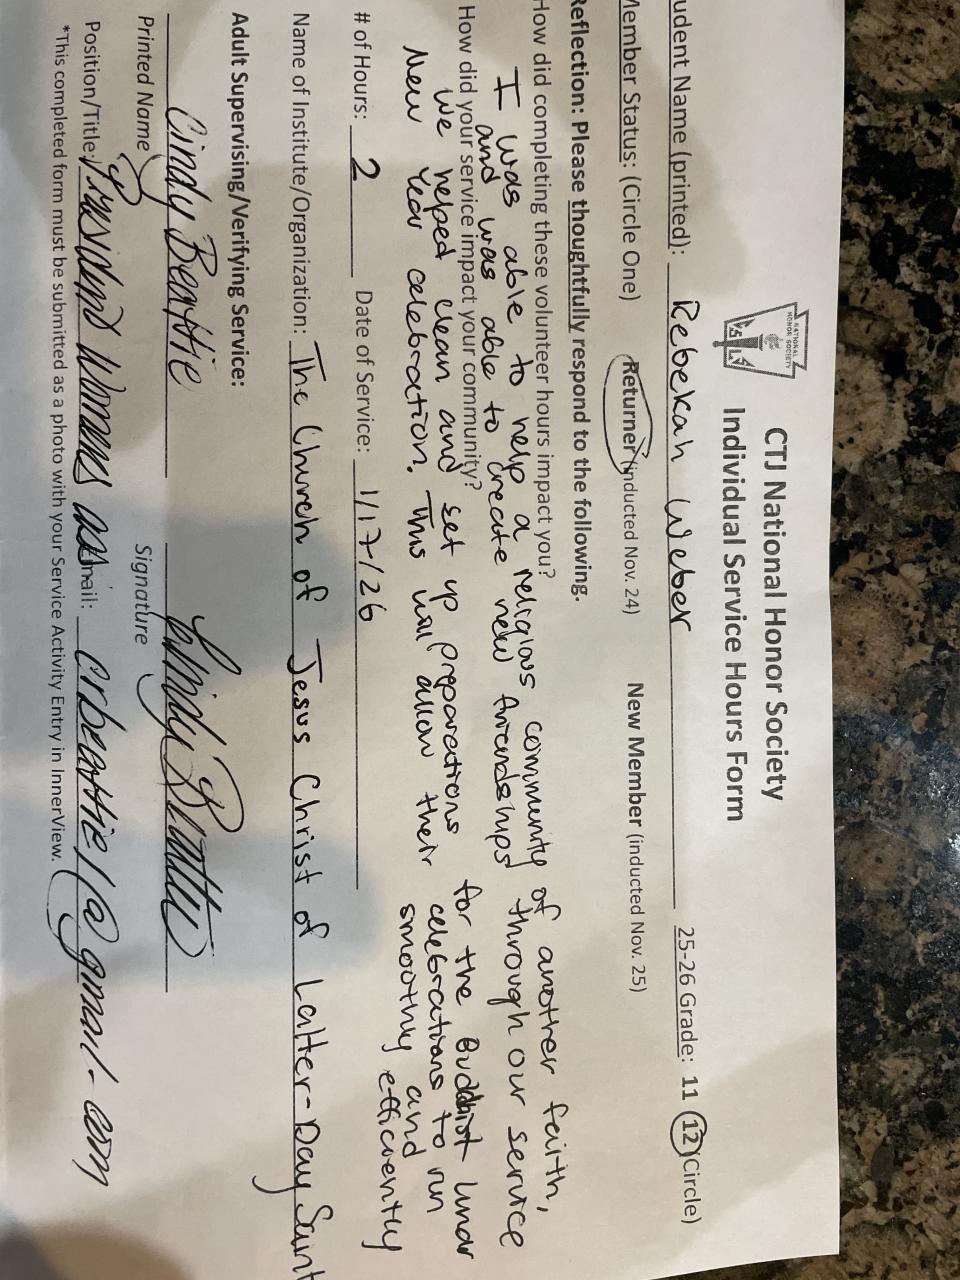 NATIONAL
HONOR SOCIETY
CTJ National Honor Society
Individual Service Hours Form
udent Name (printed): Rebekah Weber 25-26 Grade: 11 12 (Circle)
Member Status: (Circle One) Returner (inducted Nov. 24) New Member (inducted Nov. 25)
Reflection: Please thoughtfully respond to the following.
How did completing these volunteer hours impact you?
I was able to help a religious community of another faith,
and was able to create new friendships through our service
How did your service impact your community?
We helped clean and set up preparations for the Buddhist Lunar
New Year celebration. This will allow their celebrations to run
smoothly and efficiently
# of Hours: 2 Date of Service: 1/17/26
Name of Institute/Organization: The Church of Jesus Christ of Latter-Day Saint
Adult Supervising/Verifying Service:
Cindy Beattie Cindy Beattie
Printed Name Signature
Position/Title: President Womens ass mail: crbeattie1@gmail.com
*This completed form must be submitted as a photo with your Service Activity Entry in InnerView.